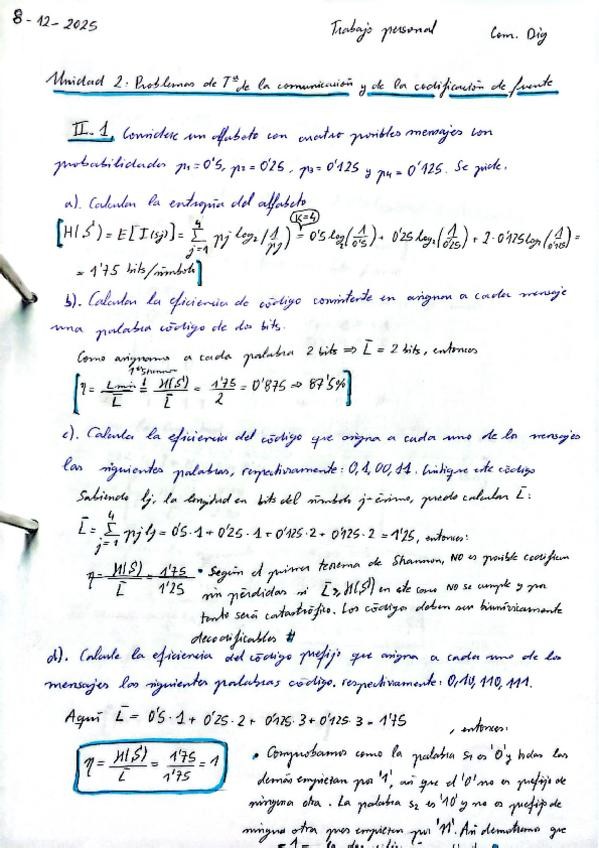 8-12-2025 Trabajo personal Com. Dig
Unidad 2: Problemas de Tª de la comunicación y de la codificación de fuente
II.1. Considere un alfabeto con cuatro posibles mensajes con
probabilidades p1=0'5, p2=0'25, p3=0'125 y p4=0'125. Se pide:
a). Calcular la entropía del alfabeto
K=4
[H(S) = E[I(sj)] = Σ_{j=1}^{4} pj log2(1/pj) = 0'5 log2(1/0'5) + 0'25 log2(1/0'25) + 2·0'125 log2(1/0'125) =
= 1'75 bits/símbolo]
b). Calcular la eficiencia de código consistente en asignar a cada mensaje
una palabra código de dos bits.
Como asignamos a cada palabra 2 bits ⇒ L̄ = 2 bits, entonces
[η = Lmin/L̄ = H(S)/L̄ = 1'75/2 = 0'875 ⇒ 87'5%]
c). Calcular la eficiencia del código que asigna a cada uno de los mensajes
las siguientes palabras, respectivamente: 0, 1, 00, 11. Critique este código
Sabiendo lj, la longitud en bits del símbolo j-ésimo, puedo calcular L̄:
L̄ = Σ_{j=1}^{4} pj lj = 0'5·1 + 0'25·1 + 0'125·2 + 0'125·2 = 1'25, entonces:
η = H(S)/L̄ = 1'75/1'25 • Según el primer teorema de Shannon, NO es posible codificar
sin pérdidas si L̄ ≥ H(S) en este caso NO se cumple y por
tanto será catastrófico. Los códigos deben ser biunívocamente
decodificables #
d). Calcule la eficiencia del código prefijo que asigna a cada uno de los
mensajes las siguientes palabras código, respectivamente: 0, 10, 110, 111.
Aquí L̄ = 0'5·1 + 0'25·2 + 0'125·3 + 0'125·3 = 1'75 , entonces:
η = H(S)/L̄ = 1'75/1'75 = 1 • Comprobamos como la palabra s1 es '0' y todas las
demás empiezan por '1', así que el '0' no es prefijo de
ninguna otra. La palabra s2 es '10' y no es prefijo de
ninguna otra pues empiezan por '11'. Así demostramos que